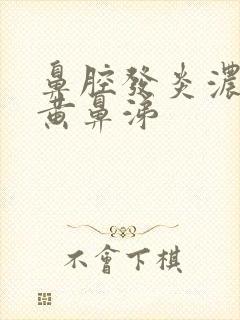 鼻腔發炎濃
黃鼻涕
不會下棋